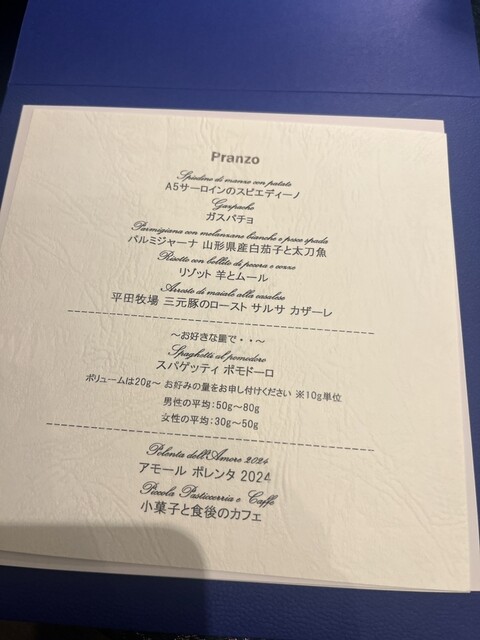 Pranzo
Spiedino di manzo con patate
A5サーロインのスピエディーノ
Gazpacho
ガスパチョ
Parmigiana con melanzane bianche e pesce spada
パルミジャーナ 山形県産白茄子と太刀魚
Risotto con bollito di pecora e cozze
リゾット 羊とムール
Arrosto di maiale alla casalese
平田牧場 三元豚のロースト サルサ カザーレ
～お好きな量で・・～
Spaghetti al pomodoro
スパゲッティ ポモドーロ
ボリュームは20g～ お好みの量をお申し付けください ※10g単位
男性の平均:50g～80g
女性の平均:30g～50g
Polenta dell'Amore 2024
アモール ポレンタ 2024
Piccola Pasticcerria e Caffé
小菓子と食後のカフェ